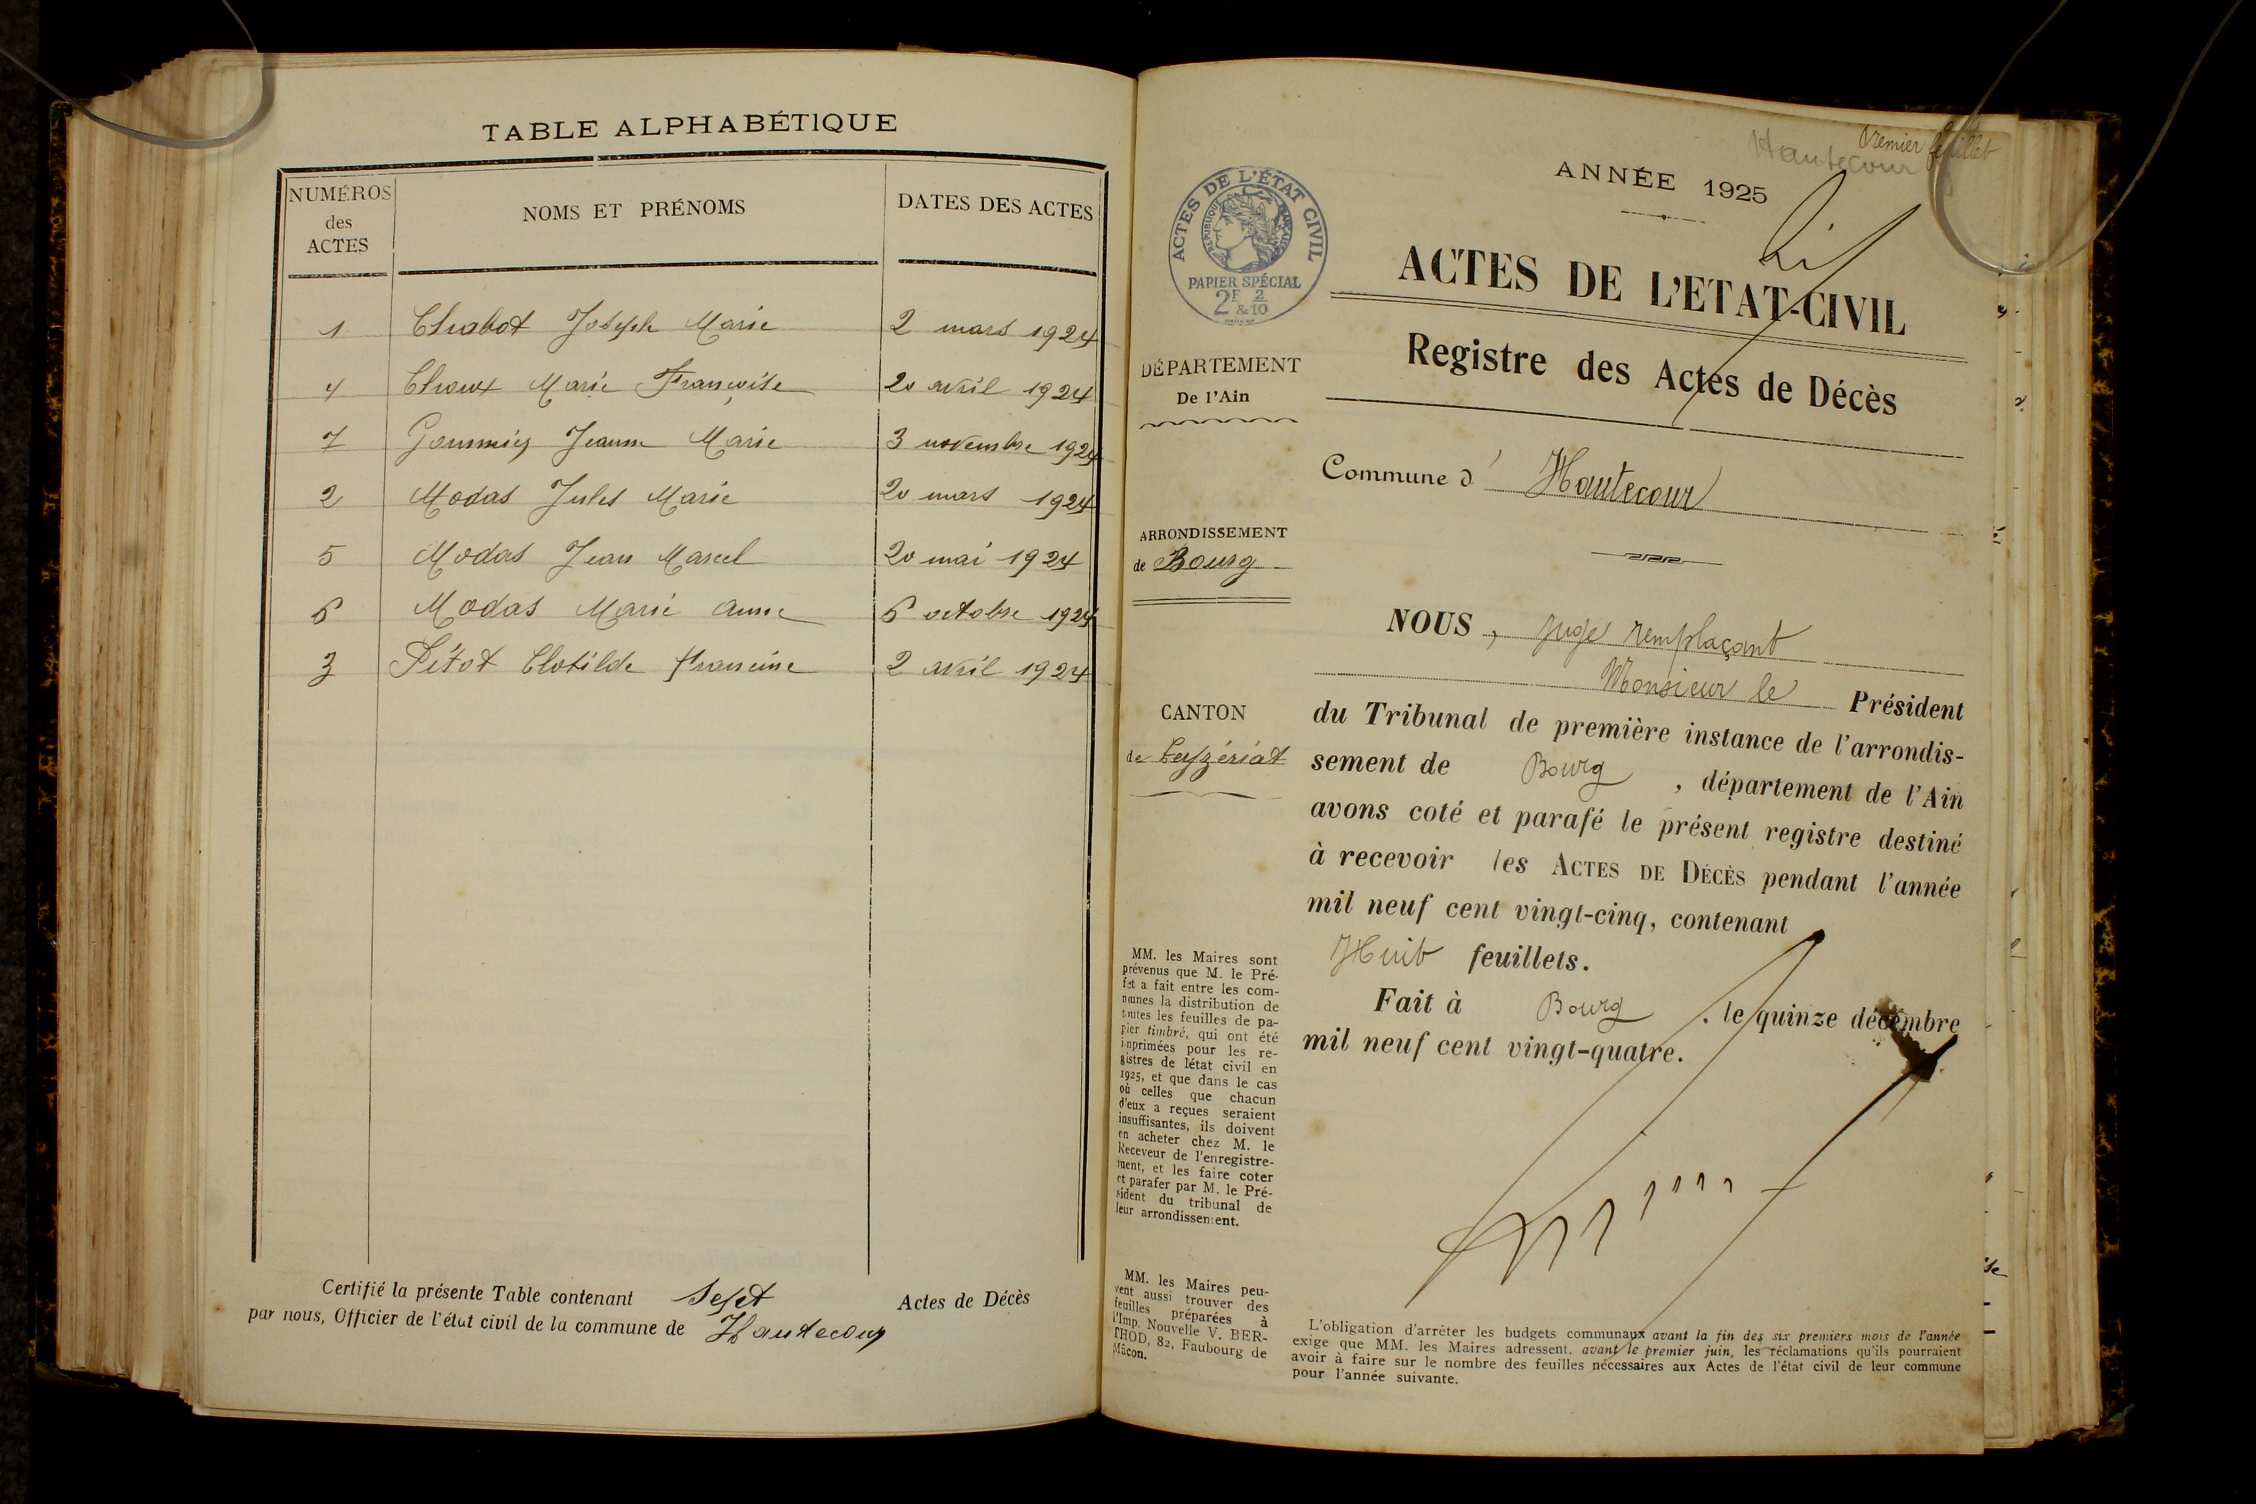 TABLE ALPHABÉTIQUE
NUMÉROS des ACTES
NOMS ET PRÉNOMS
DATES DES ACTES
1 Chabot Joseph Marie 2 mars 1924
4 Choux Marie Françoise 20 avril 1924
7 Jeanne Marie 3 novembre 1924
2 Modas Jules Marie 20 mars 1924
5 Modas Jean Marcel 20 mai 1924
6 Modas Marie Anne 6 octobre 1924
3 Pétot Clotilde Francine 2 avril 1924
Certifié la présente Table contenant Sept Actes de Décès
par nous, Officier de l'état civil de la commune de Hautecour
Premier feuillet
Hautecour
ANNÉE 1925
ACTES DE L'ÉTAT CIVIL
RÉPUBLIQUE FRANÇAISE
PAPIER SPÉCIAL
2F & 2/10
ACTES DE L'ETAT-CIVIL
Registre des Actes de Décès
DÉPARTEMENT
De l'Ain
Commune d' Hautecour
ARRONDISSEMENT
de Bourg
CANTON
de Ceyzériat
NOUS, Juge remplaçant
Monsieur le Président
du Tribunal de première instance de l'arrondis-
sement de Bourg, département de l'Ain
avons coté et parafé le présent registre destiné
à recevoir les ACTES DE DÉCÈS pendant l'année
mil neuf cent vingt-cinq, contenant
Huit feuillets.
Fait à Bourg, le quinze décembre
mil neuf cent vingt-quatre.
MM. les Maires sont
prévenus que M. le Pré-
fet a fait entre les com-
munes la distribution de
toutes les feuilles de pa-
pier timbré, qui ont été
imprimées pour les re-
gistres de létat civil en
1925, et que dans le cas
où celles que chacun
d'eux a reçues seraient
insuffisantes, ils doivent
en acheter chez M. le
Receveur de l'enregistre-
ment, et les faire coter
et parafer par M. le Pré-
sident du tribunal de
leur arrondissement.
MM. les Maires peu-
vent aussi trouver des
feuilles préparées à
l'Imp. Nouvelle V. BER-
THOD, 82, Faubourg de
Mâcon.
L'obligation d'arrêter les budgets communaux avant la fin des six premiers mois de l'année
exige que MM. les Maires adressent, avant le premier juin, les réclamations qu'ils pourraient
avoir à faire sur le nombre des feuilles nécessaires aux Actes de l'état civil de leur commune
pour l'année suivante.